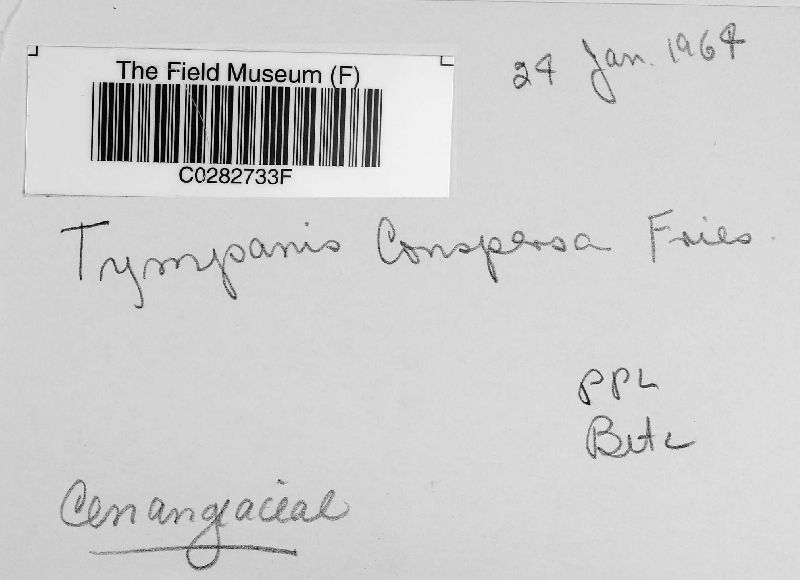 The Field Museum (F)
C0282733F
24 Jan. 1964
Tympanis Conspersa Fries.
PPL
Betz
Cenangiaceae